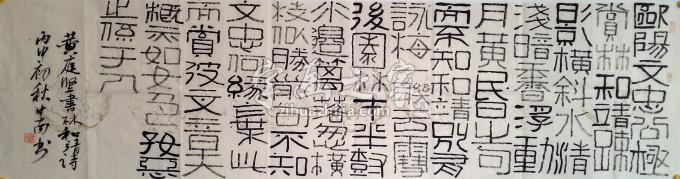 歐陽文忠公極
賞林和靖疏
影橫斜水清
淺暗香浮動
月黃昏之句
而不知和靖別有
詠梅云雪
後園林才半樹
水邊籬落忽橫
枝似勝前句不知
文忠何緣棄此
而賞彼文章大
概亦如女色好惡
止係于人
黄庭坚書林和靖詩
丙申初秋 書